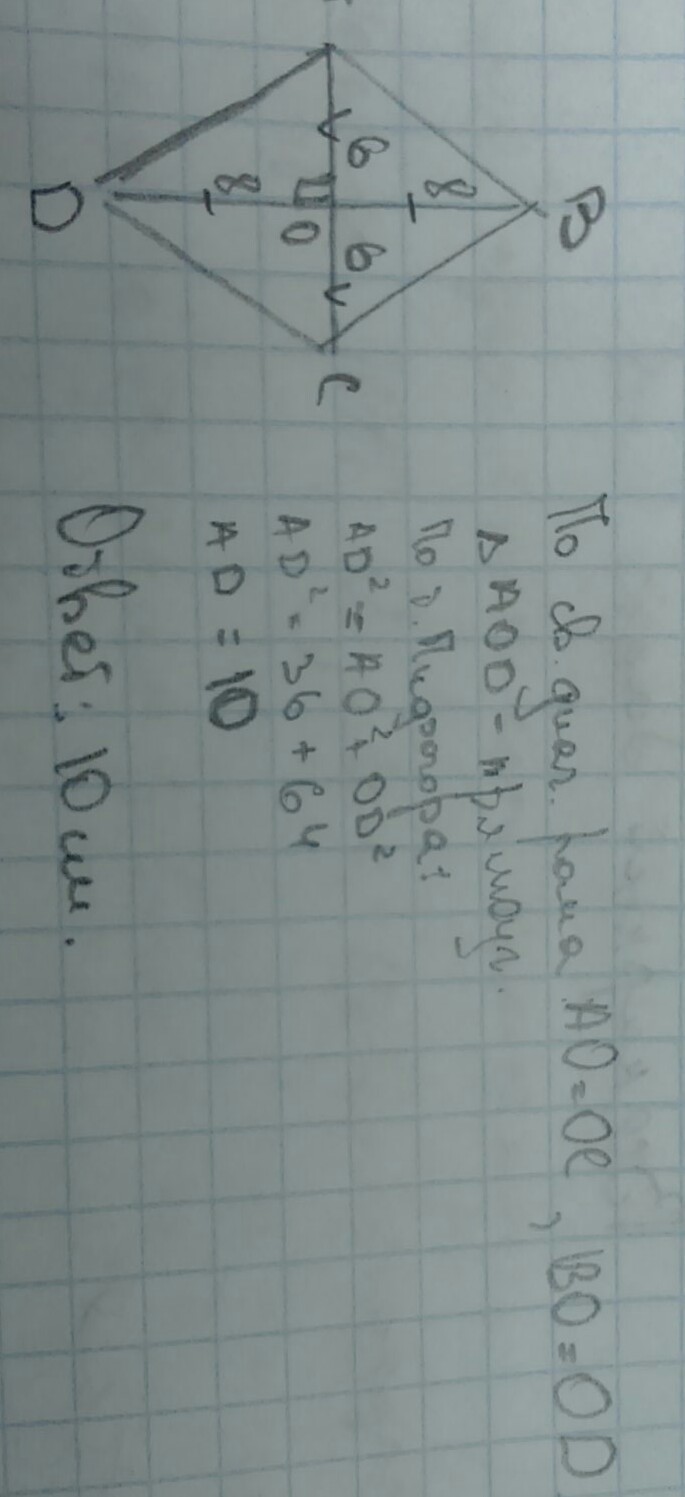 B
8 8
6 6
O
D
C
По св. диаг. ромба AO=OC, BO=OD
∆ AOD - прямоуг.
По т. Пифагора:
AD² = AO² + OD²
AD² = 36 + 64
AD = 10
Ответ: 10 см.